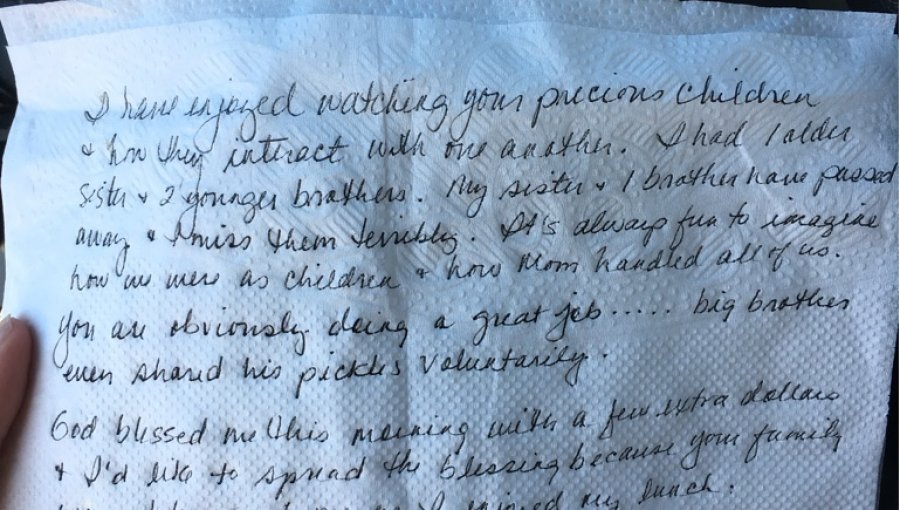 I have enjoyed watching your precious children
+ how they interact with one another. I had 1 older
sister + 2 younger brothers. My sister + 1 brother have passed
away + I miss them terribly. It's always fun to imagine
how we were as children + how Mom handled all of us.
You are obviously doing a great job..... big brother
even shared his pickles voluntarily.
God blessed me this morning with a few extra dollars
+ I'd like to spread the blessing because your family
I enjoyed my lunch.